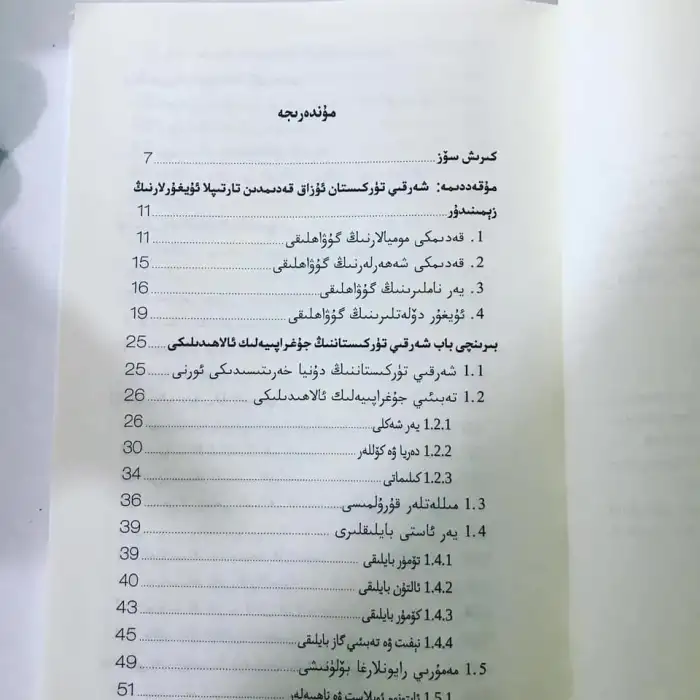 مۇندەرىجە
كىرىش سۆز ........ 7
مۇقەددىمە: شەرقىي تۈركىستان ئۇزاق قەدىمدىن تارتىپلا ئۇيغۇرلارنىڭ
زېمىنىدۇر ........ 11
1. قەدىمكى موميالارنىڭ گۇۋاھلىقى ........ 11
2. قەدىمكى شەھەرلەرنىڭ گۇۋاھلىقى ........ 15
3. يەر ناملىرىنىڭ گۇۋاھلىقى ........ 16
4. ئۇيغۇر دۆلەتلىرىنىڭ گۇۋاھلىقى ........ 19
بىرىنچى باب شەرقىي تۈركىستاننىڭ جۇغراپىيەلىك ئالاھىدىلىكى ..... 25
1.1 شەرقىي تۈركىستاننىڭ دۇنيا خەرىتىسىدىكى ئورنى ..... 25
1.2 تەبىئىي جۇغراپىيەلىك ئالاھىدىلىكى ........ 26
1.2.1 يەر شەكلى ........ 26
1.2.2 دەريا ۋە كۆللەر ........ 30
1.2.3 كىلىماتى ........ 34
1.3 مىللەتلەر قۇرۇلمىسى ........ 36
1.4 يەر ئاستى بايلىقلىرى ........ 39
1.4.1 تۆمۈر بايلىقى ........ 39
1.4.2 ئالتۇن بايلىقى ........ 40
1.4.3 كۆمۈر بايلىقى ........ 43
1.4.4 نېفىت ۋە تەبىئىي گاز بايلىقى ........ 45
1.5 مەمۇرىي رايونلارغا بۆلۈنىشى ........ 49
1.5.1 ئاپتونوم ئوبلاست ۋە ناھىيەلەر ........ 51